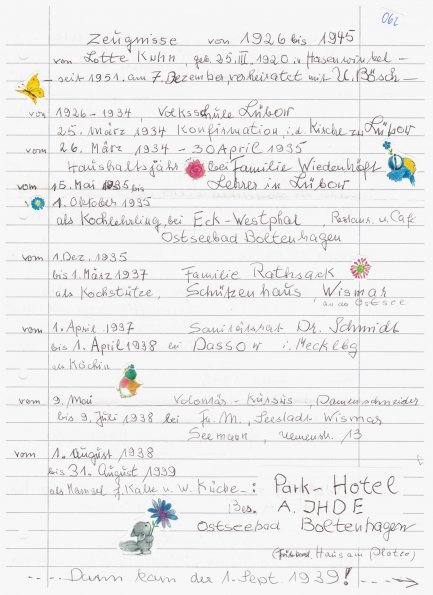 062
Zeugnisse von 1926 bis 1945
von Lotte Kuhn, geb. 25. III. 1920 i. Hasenwinkel -
- seit 1951. am 7. Dezember, verheiratet mit U. Bösch -
von 1926 - 1934, Volksschule Lübow
25. März 1934 Konfirmation, i. d. Kirche zu Lübow
vom 26. März 1934 - 30 April 1935
Haushaltsjahr bei Familie Wiedenhöft
Lehrer in Lübow
vom 15. Mai 1935 bis
1. Oktober 1935
als Kochlehrling, bei Eck-Westphal, Restaur. u. Café
Ostseebad Boltenhagen
vom 1. Dez. 1935
bis 1. März 1937 Familie Rathsack
als Kochstütze, Schützenhaus Wismar
an der Ostsee
vom 1. April 1937 Sanitätsrat Dr. Schmidt
bis 1. April 1938 bei Dassow i. Mecklbg
als Köchin
vom 9. Mai Volontär-Kursus, Damenschneider
bis 9. Juli 1938 bei Fr. M., Seestadt Wismar
Seemann, 13
vom 1. August 1938
bis 31. August 1939
als Mamsel f. Kalte u. W. Küche -: Park-Hotel
Bes. A. JHDE
Ostseebad Boltenhagen
Haus am
--- Dann kam der 1. Sept. 1939! --->